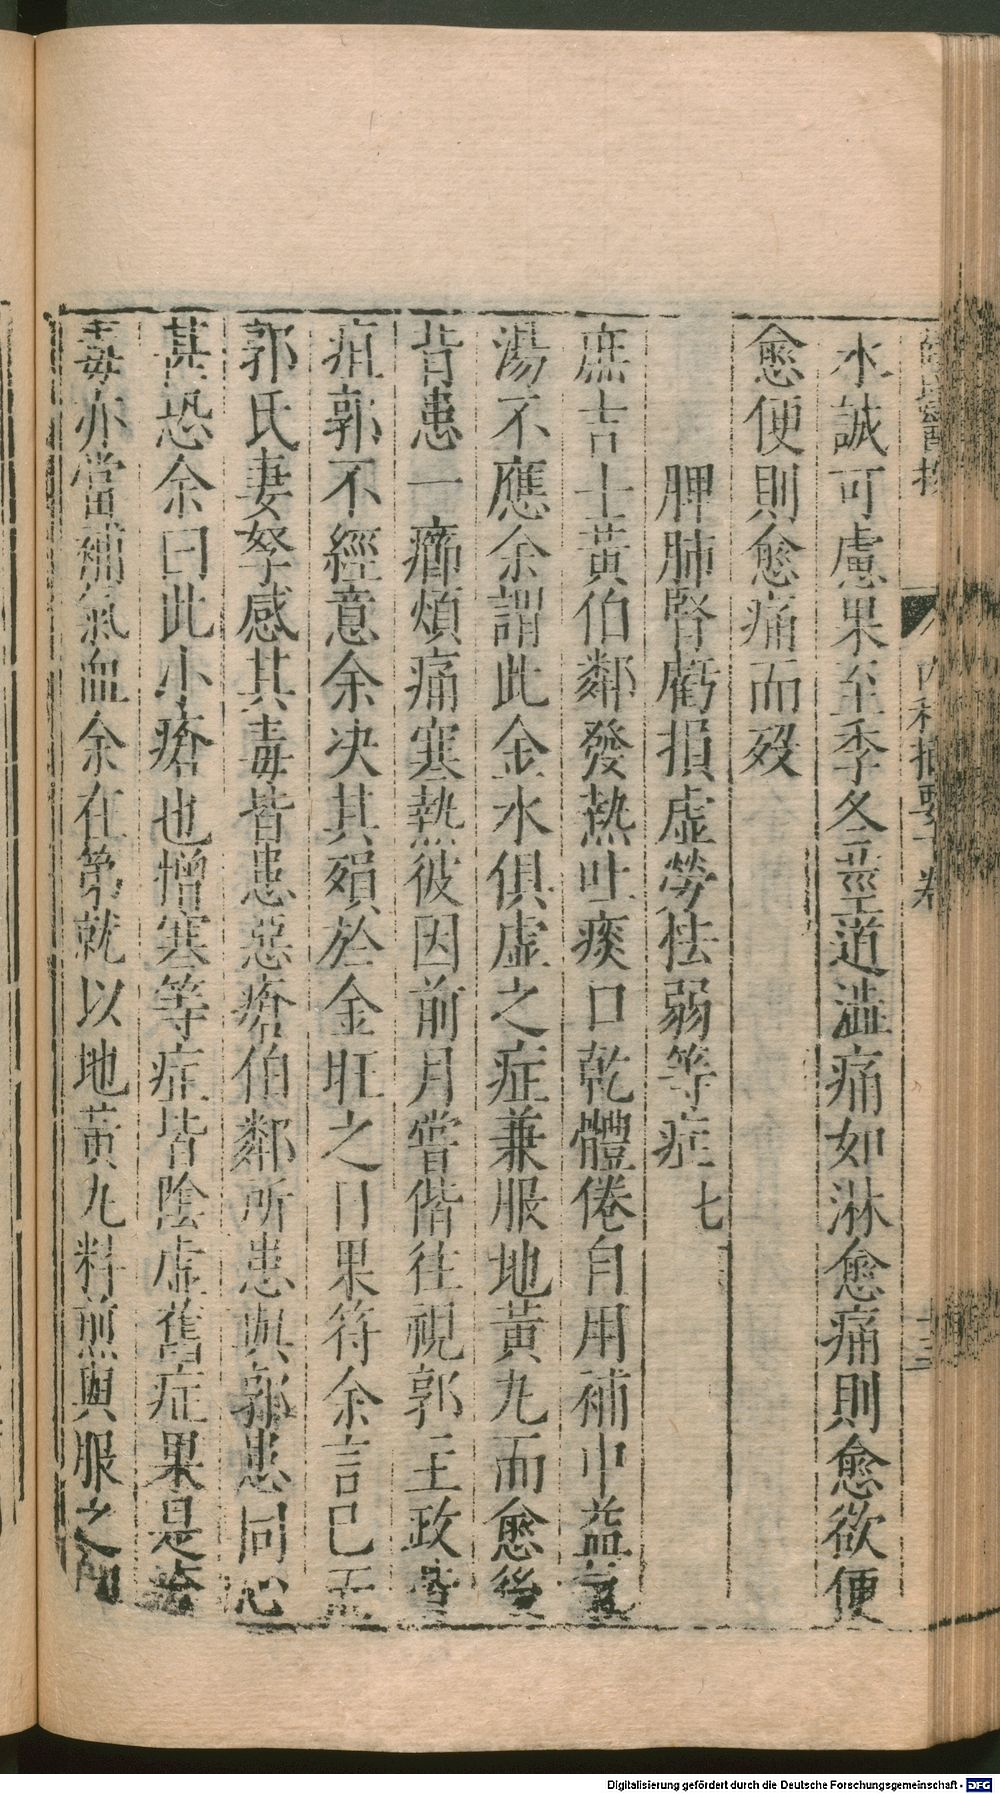 內科摘要下卷
十三
水誠可慮果至季冬莖道澁痛如淋愈痛則愈欲便
愈便則愈痛而歿
脾肺腎虧損虛勞怯弱等症 七
庶吉士黃伯鄰發熱吐痰口乾體倦自用補中益氣
湯不應余謂此金水俱虛之症兼服地黃丸而愈後
背患一癤煩痛寒熱彼因前月嘗偕往視郭主政背
疽郭不經意余决其殞於金旺之日果符余言已而
郭氏妻孥感其毒皆患惡瘡伯鄰所患與郭患同心
甚恐余曰此小瘡也憎寒等症皆陰虛舊症果是瘡
毒亦當補氣血余在第就以地黃丸料煎與服之
Digitalisierung gefördert durch die Deutsche Forschungsgemeinschaft - DFG